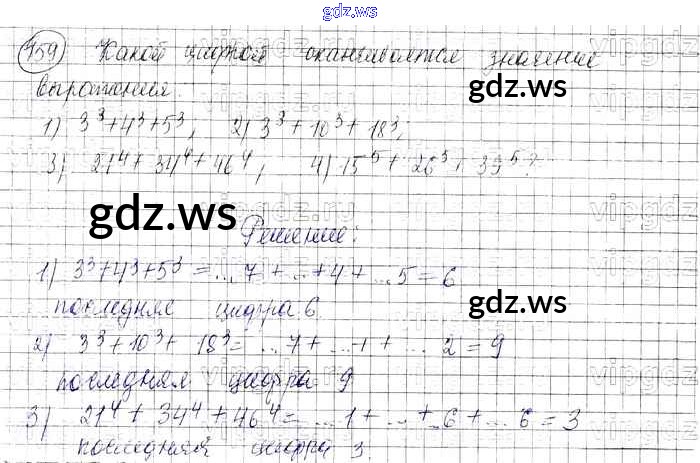 gdz.ws
459) Какой цифрой оканчивается значение
выражения
gdz.ws
1) 3³+4³+5³, 2) 3³+10³+18³;
3) 21⁴+34⁴+46⁴, 4) 15⁵+26⁵+39⁵?
gdz.ws
Решение:
1) 3³+4³+5³=...7+..+4+...5=6
последняя цифра 6.
gdz.ws
2) 3³+10³+18³=...7+...+...2=9
последняя цифра 9
3) 21⁴+34⁴+46⁴=...1+...+6+...6=3
gdz.ws
последняя цифра 3.